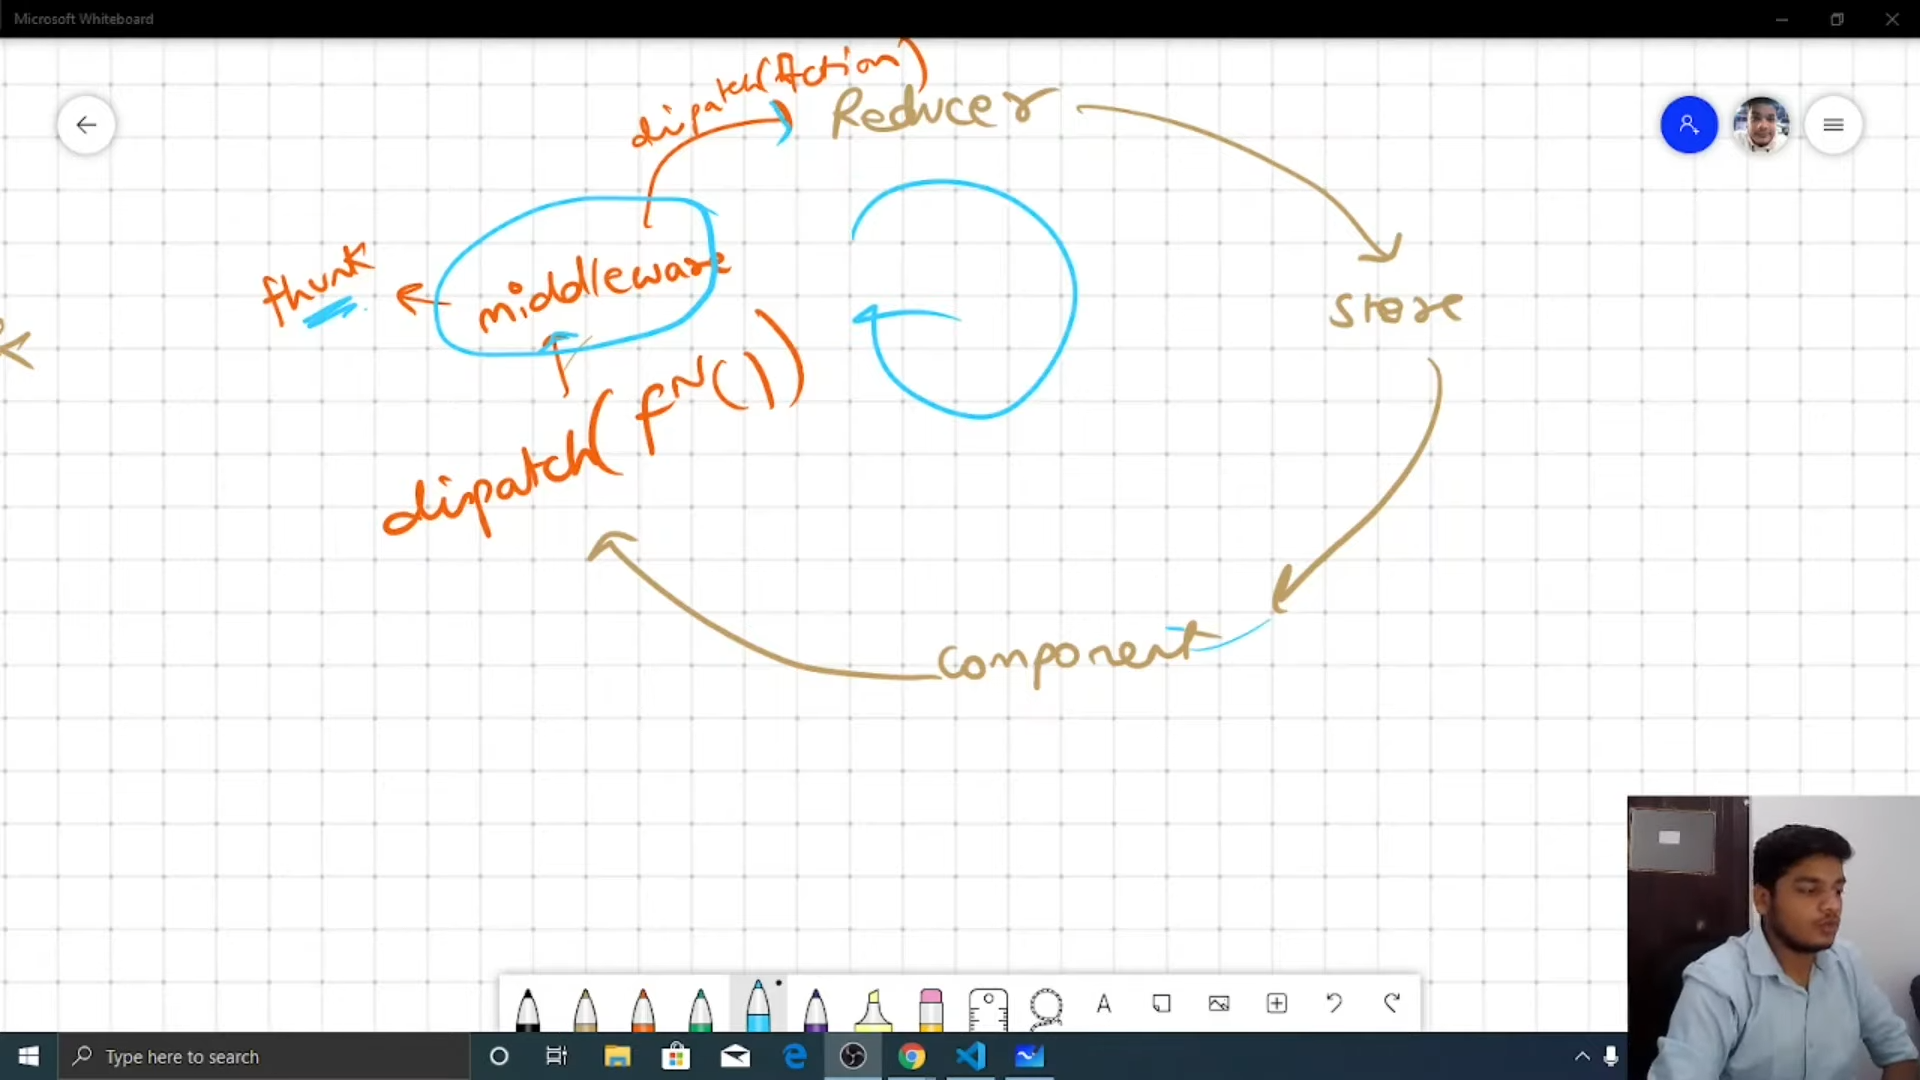 Microsoft Whiteboard
dispatch(Action)
Reducer
thunk
middleware
store
dispatch(fN())
component
A
Type here to search